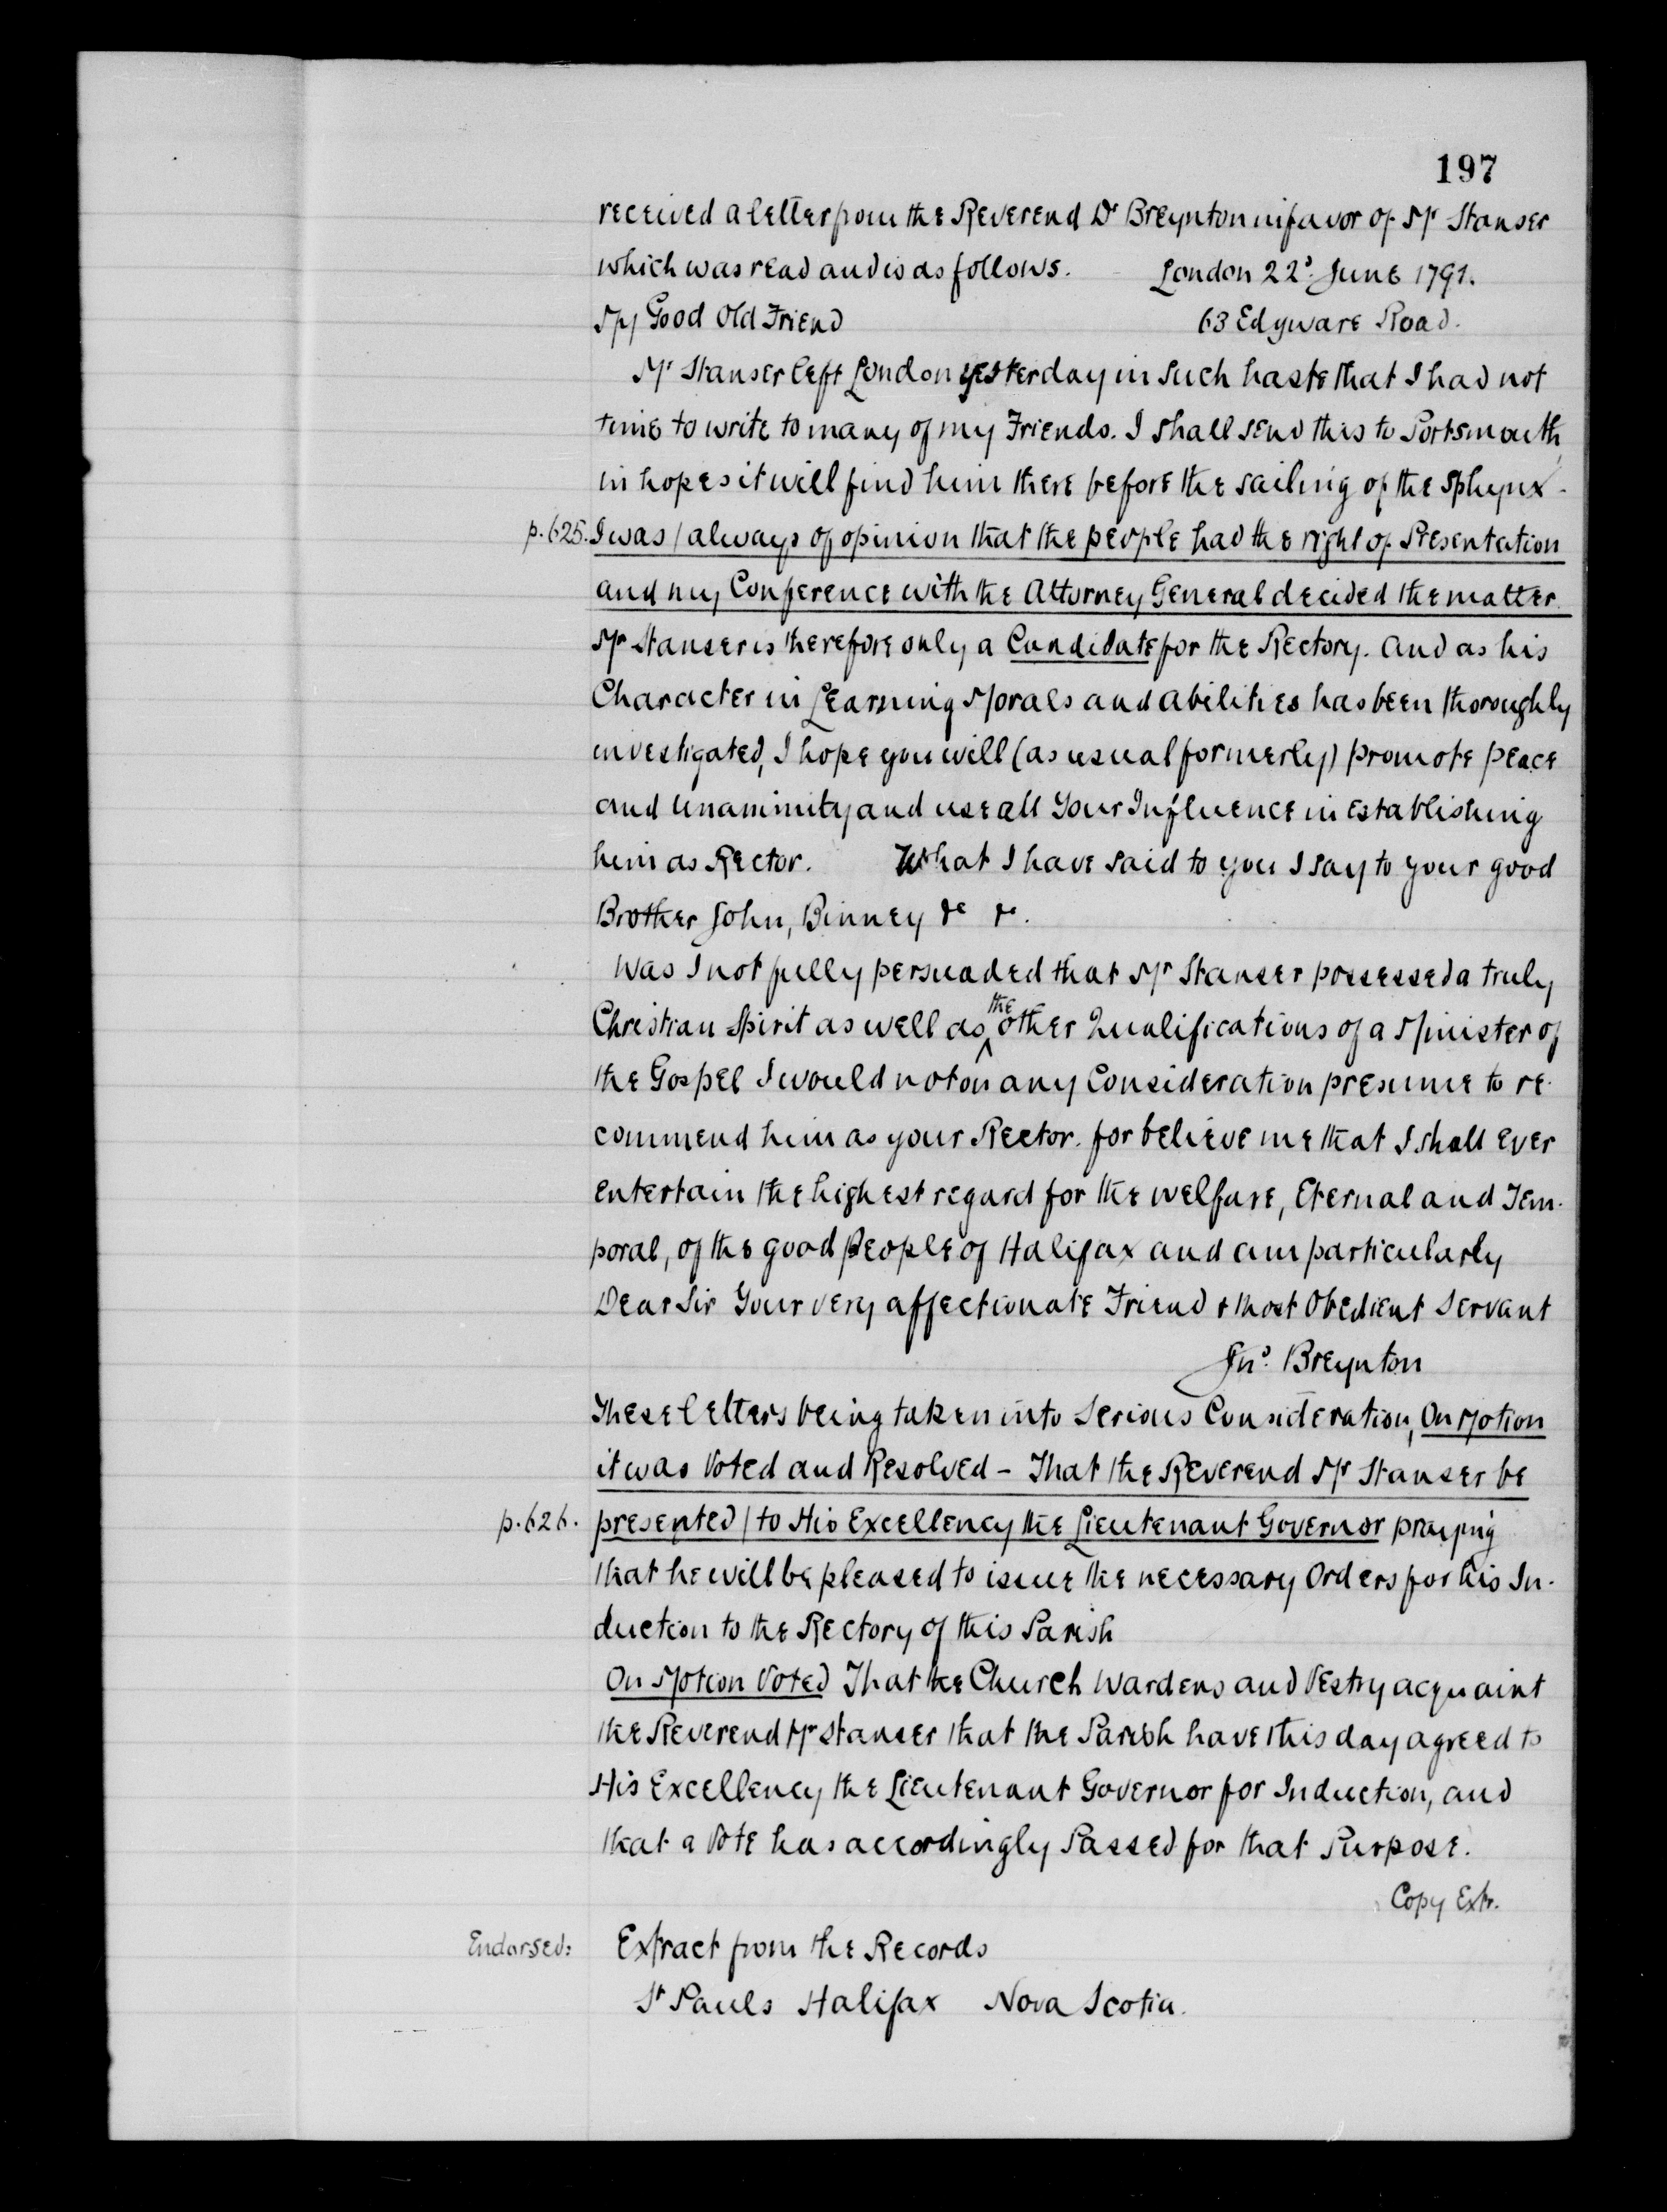 197
received a letter from the Reverend Dr Breynton in favor of Mr Stanser
which was read and is as follows. London 22d. June 1791.
My Good Old Friend 63 Edgware Road.
Mr Stanser left London yesterday in such haste that I had not
time to write to many of my Friends. I shall send this to Portsmouth
in hopes it will find him there before the sailing of the Sphynx.
p.625. I was / always of opinion that the people had the right of Presentation
and my Conference with the Attorney General decided the matter.
Mr Stanser is therefore only a Candidate for the Rectory. And as his
Character in Learning Morals and Abilities has been thoroughly
investigated, I hope you will (as usual formerly) promote peace
and Unanimity and use all Your Influence in Establishing
him as Rector. What I have said to you I say to your good
Brother John, Binney &c &c.
Was I not fully persuaded that Mr Stanser possessed a truly
Christian Spirit as well as the other Qualifications of a Minister of
the Gospel I would not on any Consideration presume to re-
commend him as your Rector. for believe me that I shall ever
entertain the highest regard for the welfare, Eternal and Tem-
poral, of the good People of Halifax and am particularly
Dear Sir Your very affectionate Friend & Most Obedient Servant
Jno. Breynton
These letters being taken into Serious Consideration, On Motion
it was Voted and Resolved - That the Reverend Mr Stanser be
p.626. presented / to His Excellency the Lieutenant Governor praying
that he will be pleased to issue the necessary Orders for his In-
duction to the Rectory of this Parish
On Motion Voted That the Church Wardens and Vestry acquaint
the Reverend Mr Stanser that the Parish have this day agreed to
His Excellency the Lieutenant Governor for Induction, and
that a Vote has accordingly Passed for that Purpose.
Copy Extr.
Endorsed: Extract from the Records
St Pauls Halifax Nova Scotia.